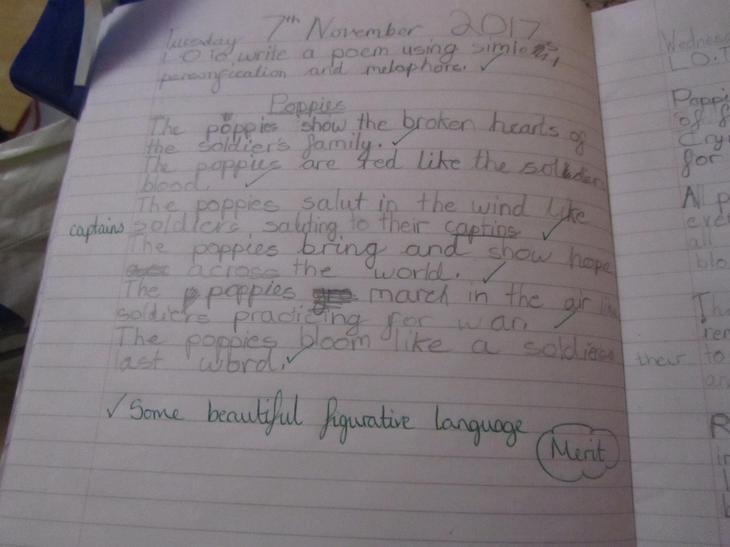 Tuesday 7th November 2017
L O to write a poem using similes,
personification and metaphore.
Poppies
The poppies show the broken hearts of
the soldier's family.
The poppies are red like the soldiers
blood.
The poppies salut in the wind like
captains soldiers saluting to their captins
The poppies bring and show hope
across the world.
The poppies march in the air like
soldiers practicing for war.
The poppies bloom like a soldiers
last word.
Some beautiful figurative language
Merit
Wednes
L.O.T
Poppi
of f
Cry
for
All p
eve
all
blo
The
rem
their to
an
R
in